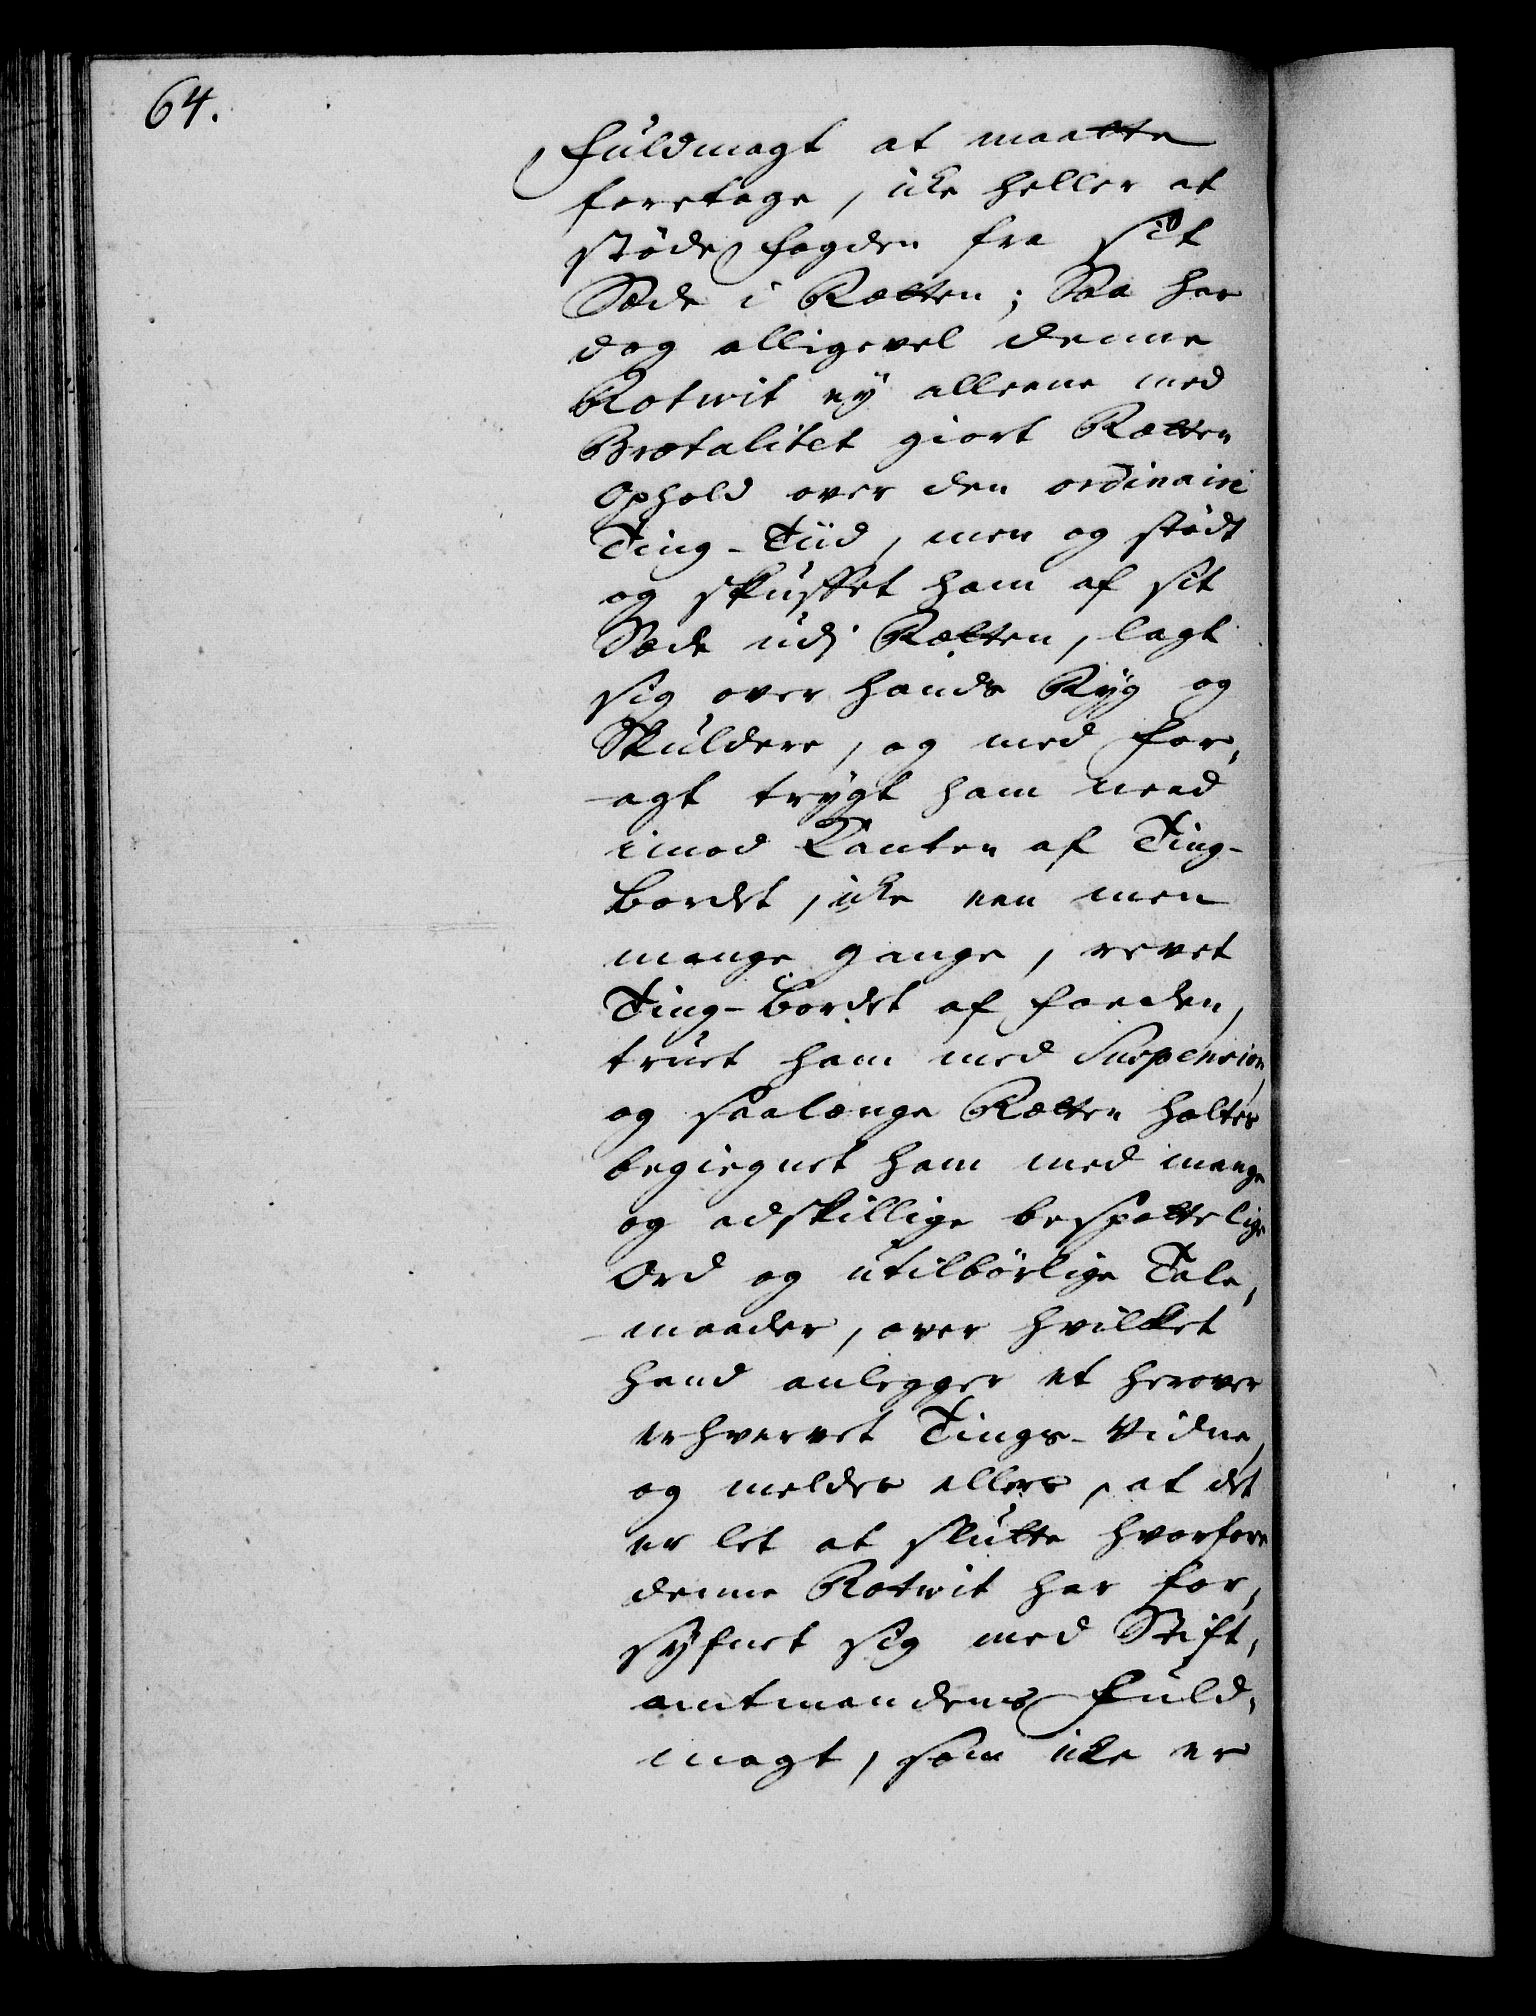 64.
Fuldmagt at maatte
foretage, icke heller at
støde Fogden fra sit
Sæde i Rætten; Saa har
dog alligevel denne
Rotwit ey alleene med
Brutalitet giort Rætten
Ophold over den ordinaire
Ting-Tiid, men og stødt
og skuffet ham af sit
Sæde udj Rætten, lagt
sig over hands Ryg og
Skuldere, og med for-
agt trygt ham need
imod Kanten af Ting-
Bordet, icke een men
mange gange, revet
Ting-Bordet af Foeden,
truet ham med Suspension,
og saalænge Rætten holtes
begiegnet ham med mange
og adskillige bespottelige
Ord og utilbørlige Tale-
maader, over hvilket
hand anlegger et herover
erhvervet Tings-Vidne,
og melder ellers, at det
er let at slutte hvorfore
denne Rotwit har for-
syfnet sig med Stift-
amtmandens Fuld-
magt, som icke er